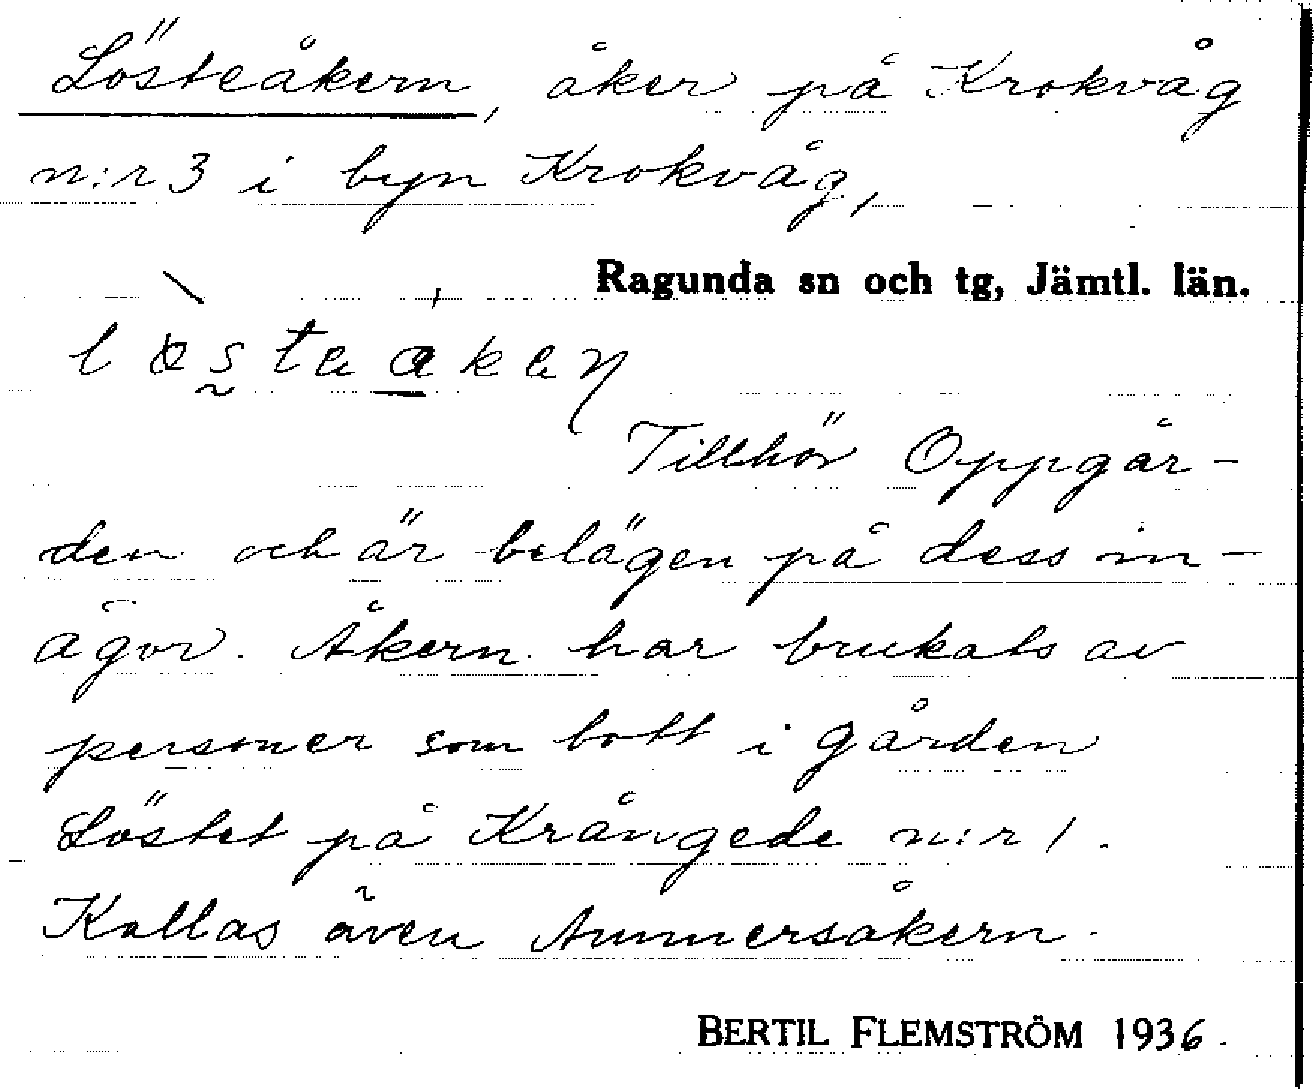 Lösteåkern, åker på Krokvåg
n:r 3 i byn Krokvåg,
Ragunda sn och tg, Jämtl. län.
Tillhör Oppgår-
den och är belägen på dess in-
ägor. Åkern har brukats av
personer som bott i gården
Löstet på Krångede n:r 1.
Kallas även Ammersåkern.
BERTIL FLEMSTRÖM 1936.